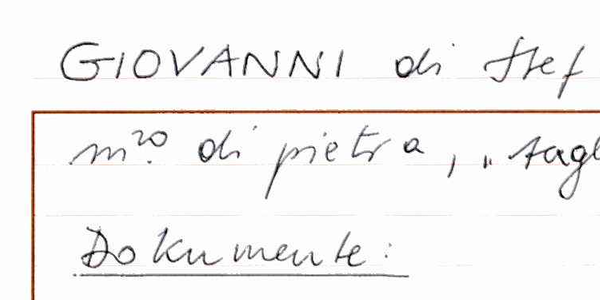 GIOVANNI di Stef
m.ro di pietra, „tagl
Dokumente: